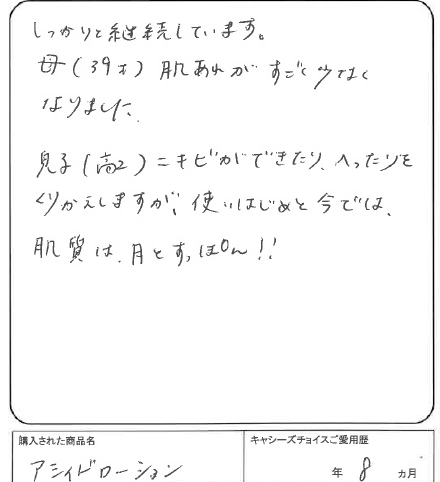 しっかりと継続しています。
母(39才)肌あれがすごく少なく
なりました。
息子(高2)ニキビができたり、へったりを
くりかえしますが、使いはじめと今では、
肌質は、月とすっぽん!!
購入された商品名
キャシーズチョイスご愛用歴
アシィドローション
年 8 カ月